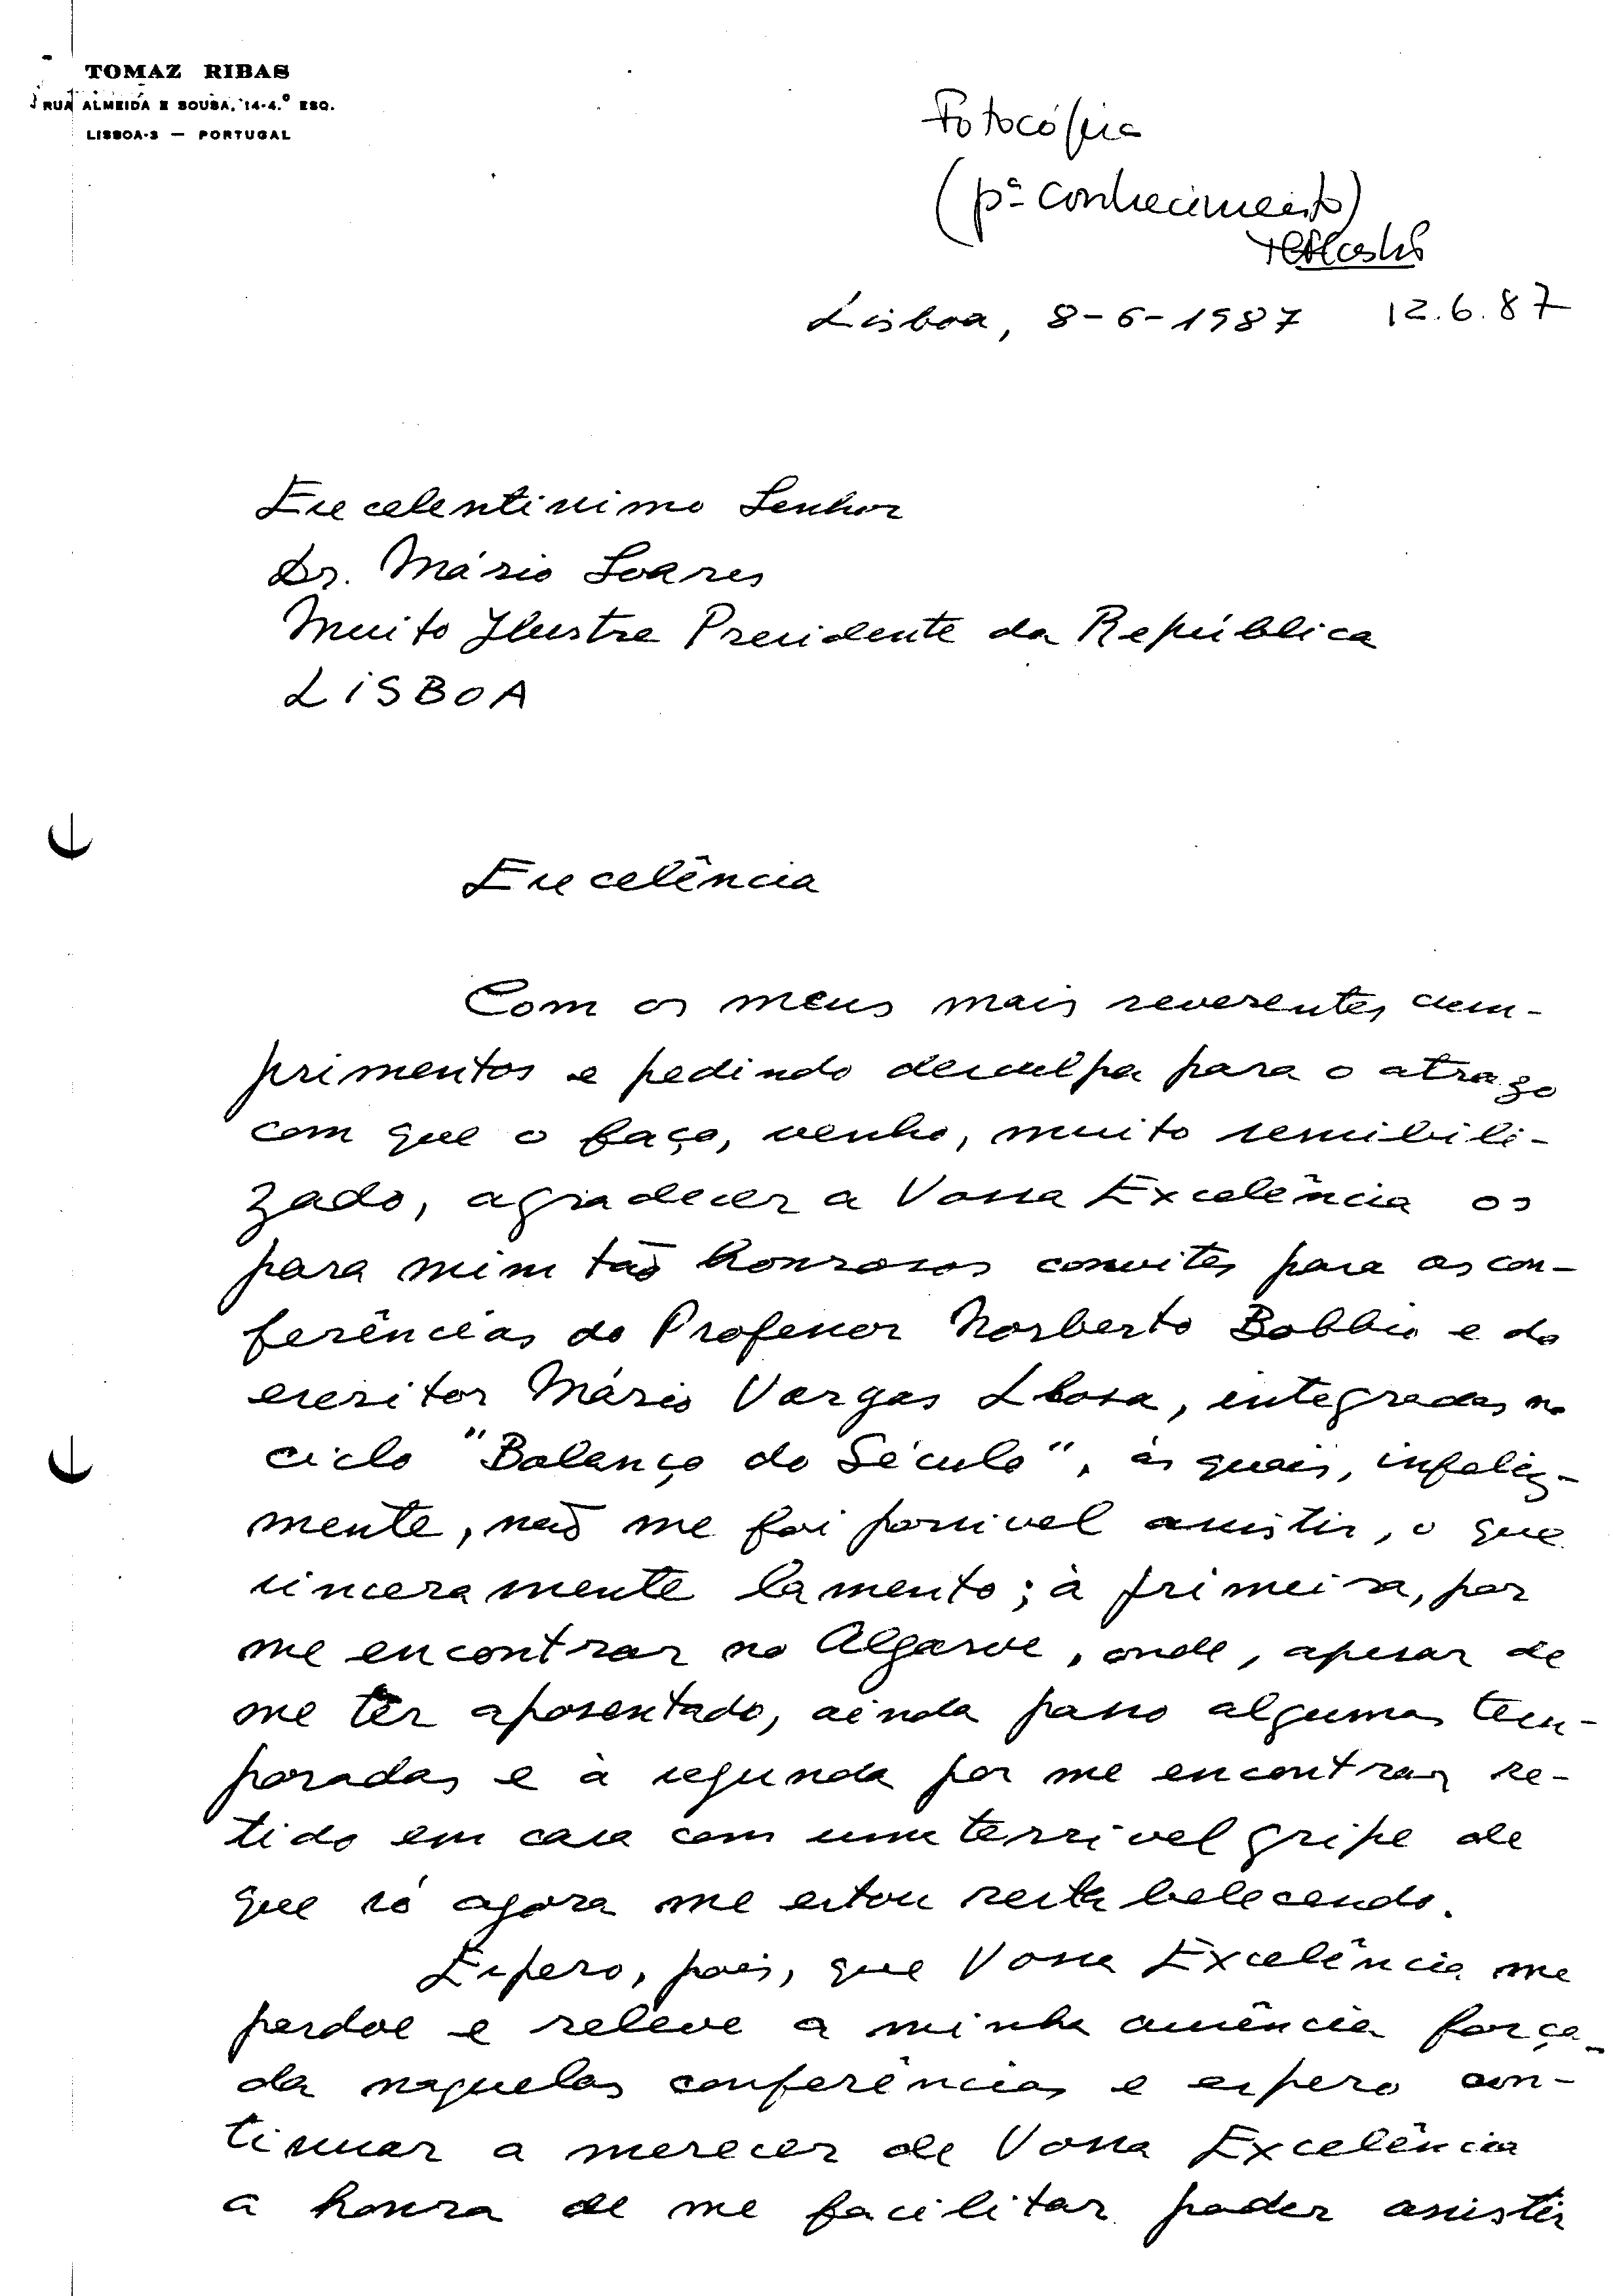 TOMAZ RIBAS
RUA ALMEIDA E SOUSA, 14-4.º ESQ.
LISBOA-3 — PORTUGAL
Fotocópia
(pª conhecimento)
12.6.87
Lisboa, 8-6-1987
Excelentissimo Senhor
Dr. Mário Soares
Muito Ilustre Presidente da República
LISBOA
Excelência
Com os meus mais reverentes cum-
primentos e pedindo desculpa para o atrazo
com que o faço, venho, muito sensibili-
zado, agradecer a Vossa Excelência os
para mim tão honrosos convites para as con-
ferências do Professor Norberto Bobbio e do
escritor Mário Vargas Llosa, integradas no
ciclo "Balanço do Século", às quais, infeliz-
mente, não me foi possivel assistir, o que
sinceramente lamento; à primeira, por
me encontrar no Algarve, onde, apesar de
me ter aposentado, ainda passo algumas tem-
poradas e à segunda por me encontrar re-
tido em casa com uma terrivel gripe de
que só agora me estou restabelecendo.
Espero, pois, que Vossa Excelência me
perdoe e releve a minha ausência força-
da naquelas conferências e espero con-
tinuar a merecer de Vossa Excelência
a honra de me facilitar poder assistir